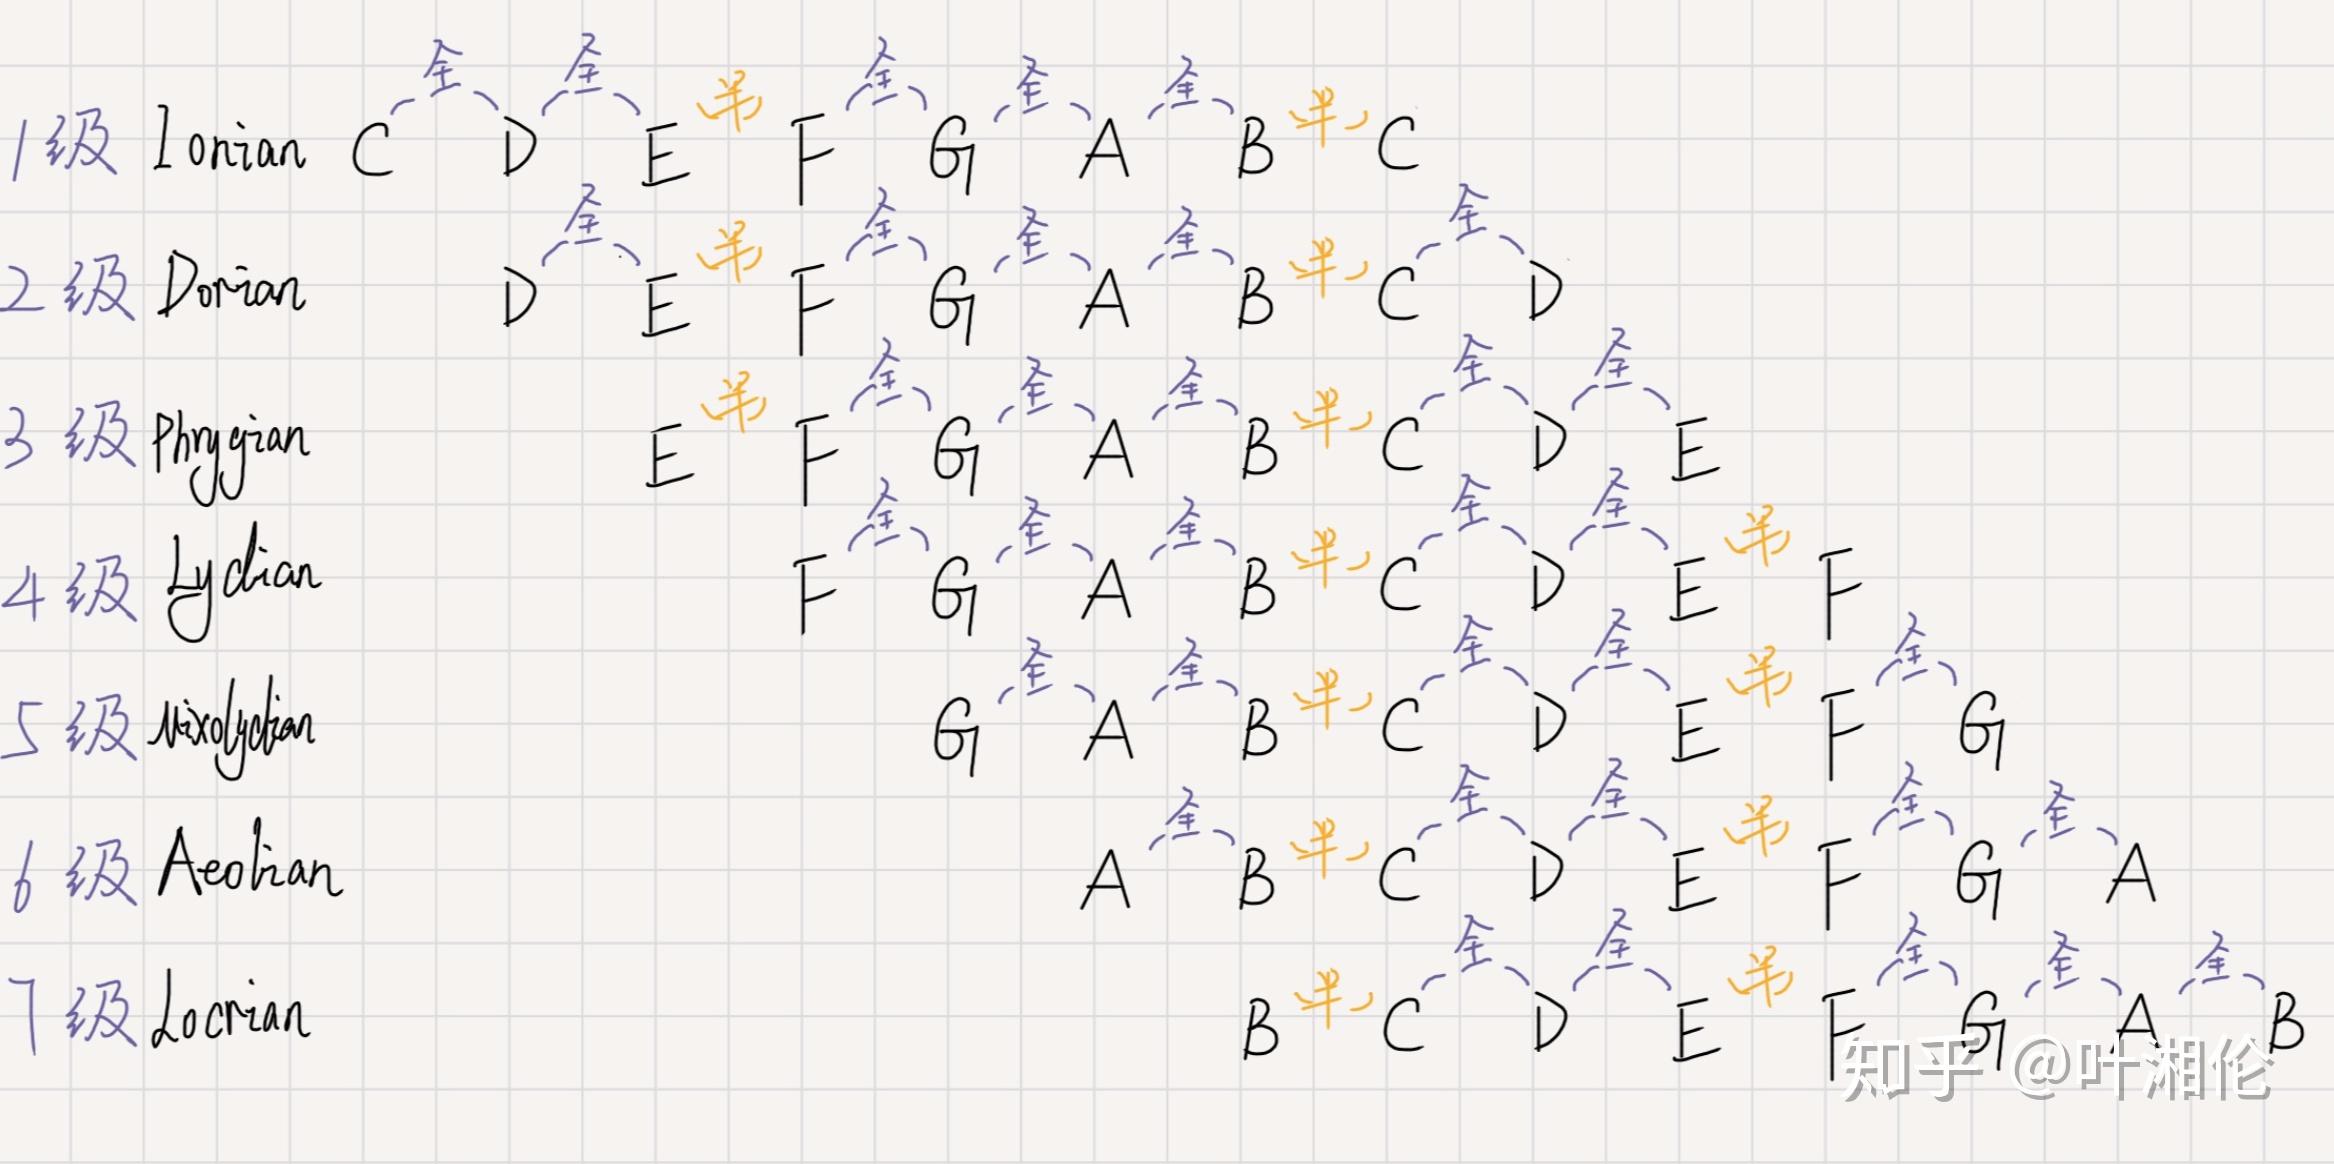 全 全 半 全 全 全 半
1级 Ionian C D E F G A B C
全 半 全 全 全 半 全
2级 Dorian D E F G A B C D
半 全 全 全 半 全 全
3级 Phrygian E F G A B C D E
全 全 全 半 全 全 半
4级 Lydian F G A B C D E F
全 全 半 全 全 半 全
5级 Mixolydian G A B C D E F G
全 半 全 全 半 全 全
6级 Aeolian A B C D E F G A
半 全 全 半 全 全 全
7级 Locrian B C D E F G A B
知乎 @叶湘伦